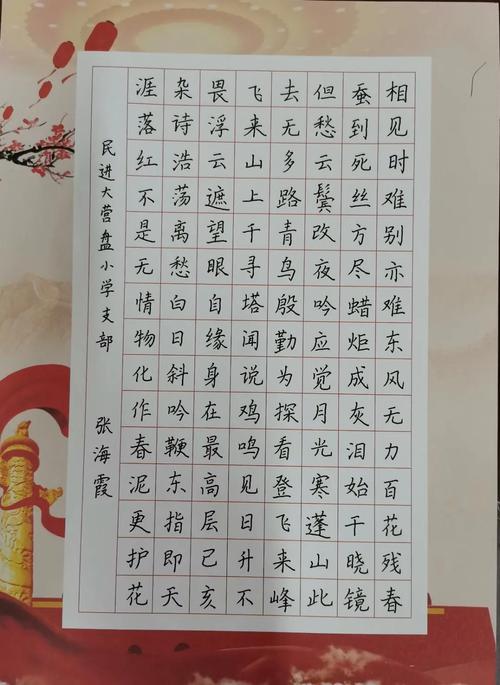 相见时难别亦难东风无力百花残春
蚕到死丝方尽蜡炬成灰泪始干晓镜
但愁云鬓改夜吟应觉月光寒蓬山此
去无多路青鸟殷勤为探看登飞来峰
飞来山上千寻塔闻说鸡鸣见日升不
畏浮云遮望眼自缘身在最高层己亥
杂诗浩荡离愁白日斜吟鞭东指即天
涯落红不是无情物化作春泥更护花
民进大营盘小学支部 张海霞